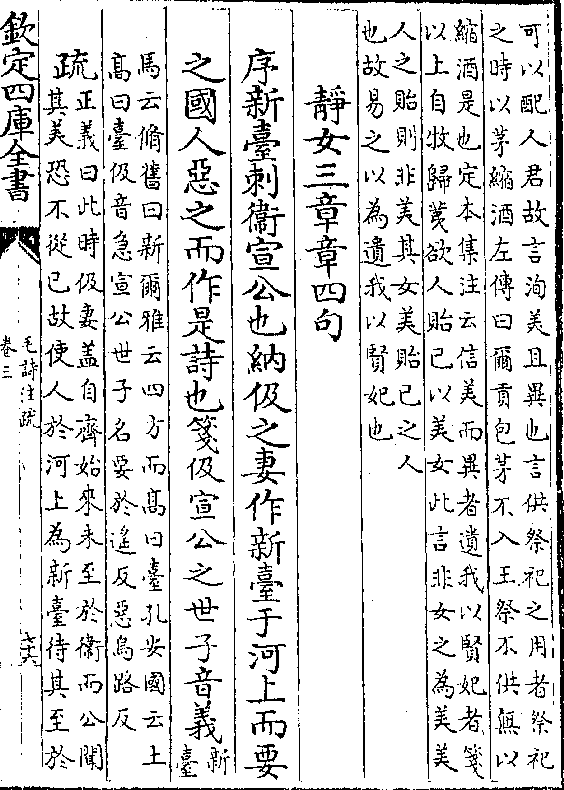 可以配人君故言洵美且異也言供祭祀之用者祭祀
之時以茅縮酒左傳曰爾貢包茅不入王祭不供無以
縮酒是也定本集注云信美而異者遺我以賢妃者箋
以上自牧歸荑欲人貽已以美女此言非女之為美美
人之貽則非美其女美貽已之人
也故易之以為遺我以賢妃也
靜女三章章四句
序新臺刺衞宣公也納伋之妻作新臺于河上而要
之國人惡之而作是詩也箋伋宣公之世子音義新
臺
馬云脩舊曰新爾雅云四方而髙曰臺孔安國云土
髙曰臺伋音急宣公世子名要於遙反惡烏路反
疏正義曰此時伋妻蓋自齊始來未至於衞而公聞
其美恐不從已故使人於河上為新臺待其至於
欽定四庫全書
毛詩注疏
卷三